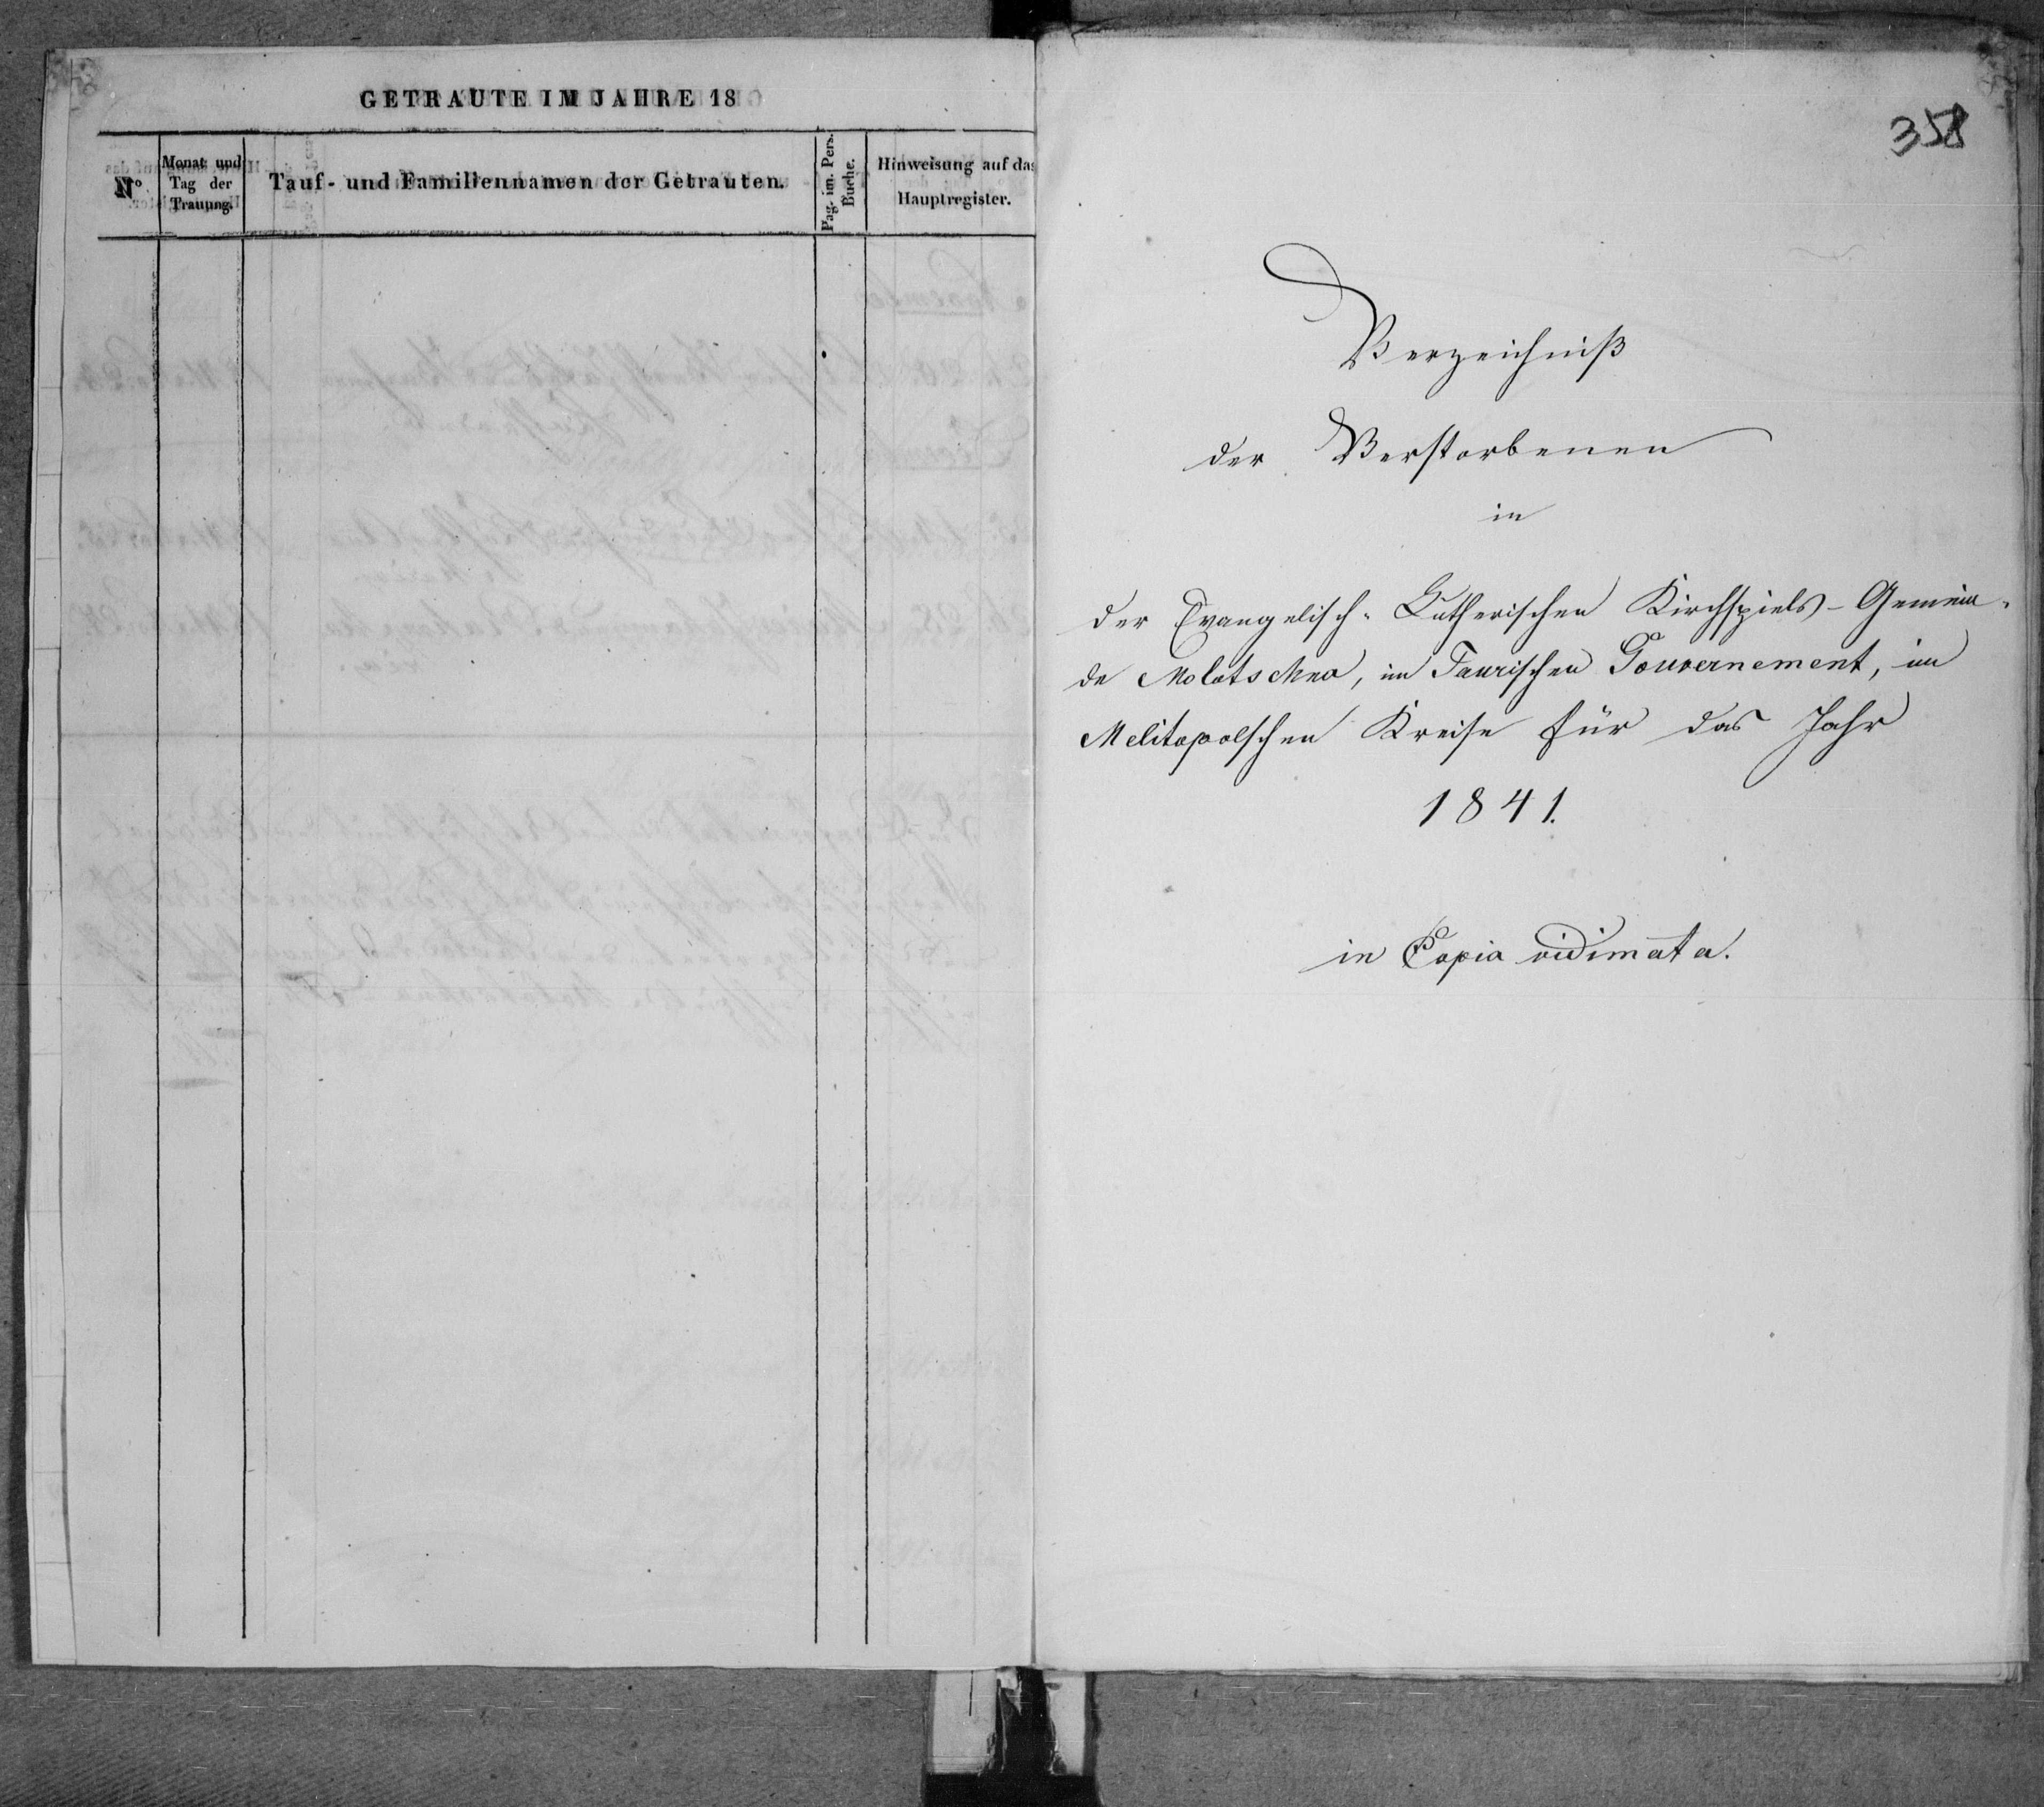 GETRAUTE IM JAHRE 18
No
Monat und
Tag der
Trauung.
Tauf- und Familiennamen der Getrauten.
Pag. im. Pers.
Buche.
Hinweisung auf das
Hauptregister.
358
Verzeichniß
der Verstorbenen
in
der Evangelisch-Lutherischen Kirchspiels-Gemein-
de Molotschna, im Taurischen Gouvernement, im
Melitopolschen Kreise für das Jahr
1841.
in Copia vidimata.